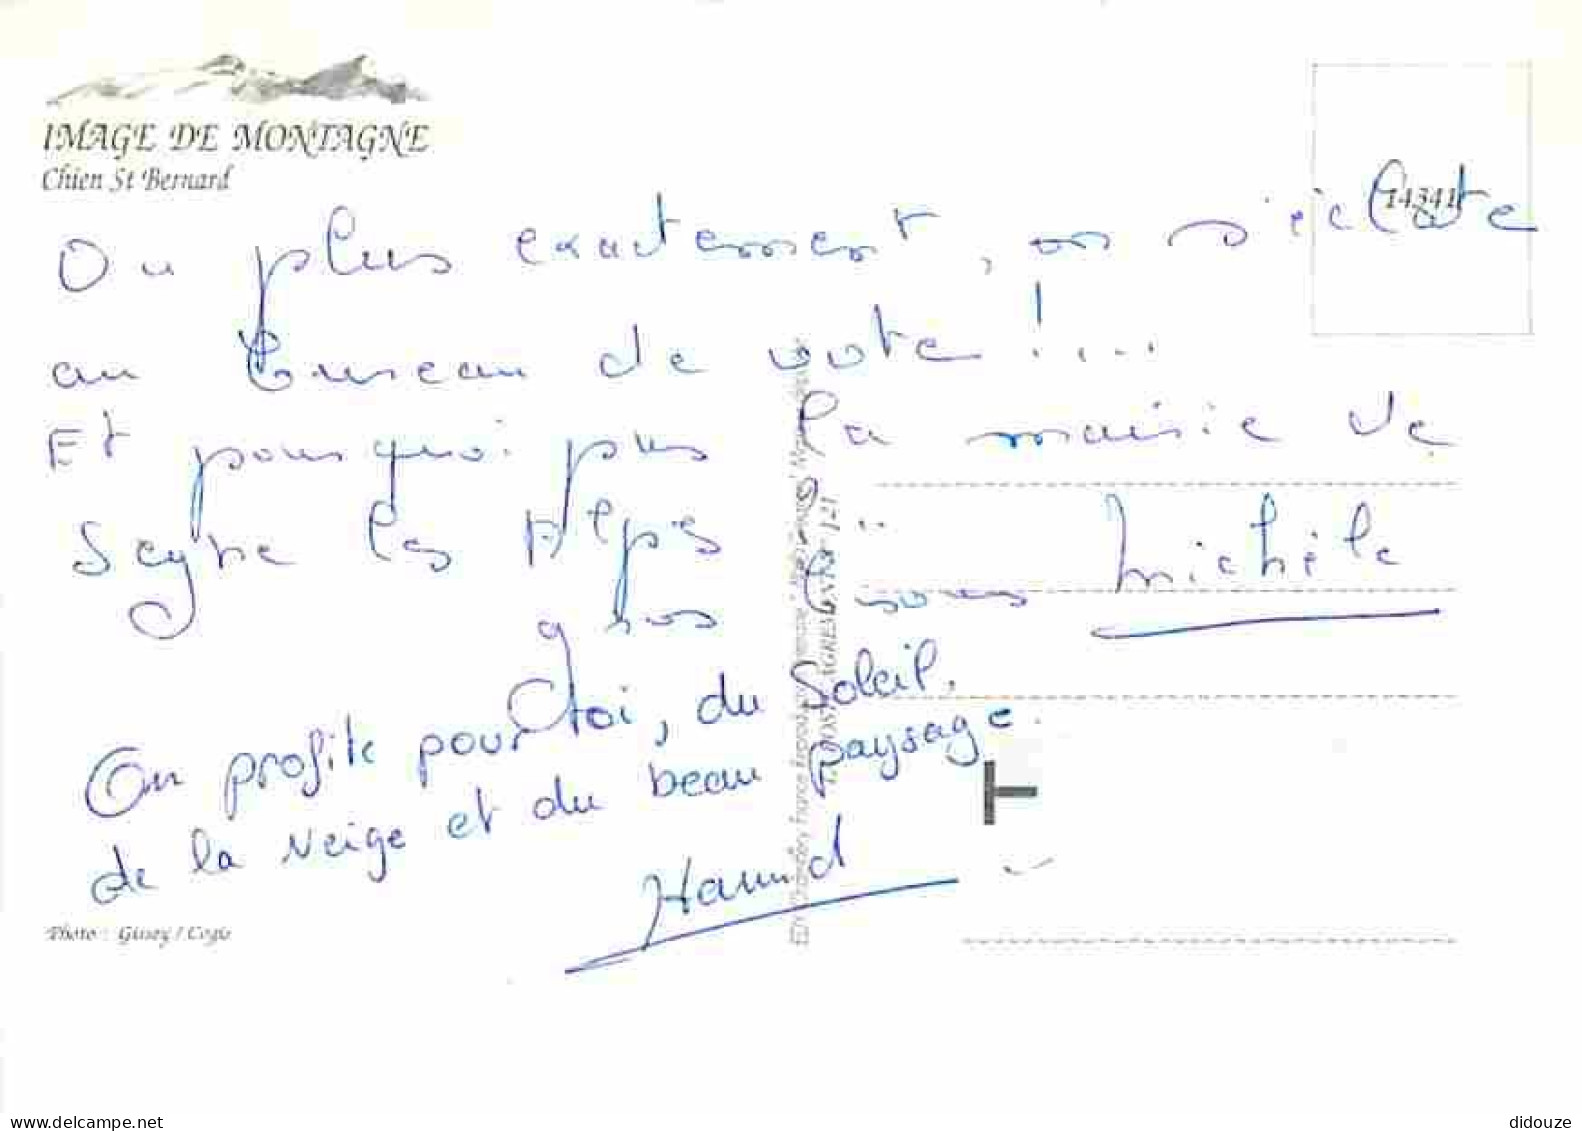 IMAGE DE MONTAGNE
Chien St Bernard
14341
Ou plus exactement, on s'éclate
au bureau de vote !....
Et pourquoi pas la mairie de
Seyne les Alpes
gros bisous Michèle
On profite pour toi, du Soleil,
de la neige et du beau paysage.
Hamid
Photo :
didouze